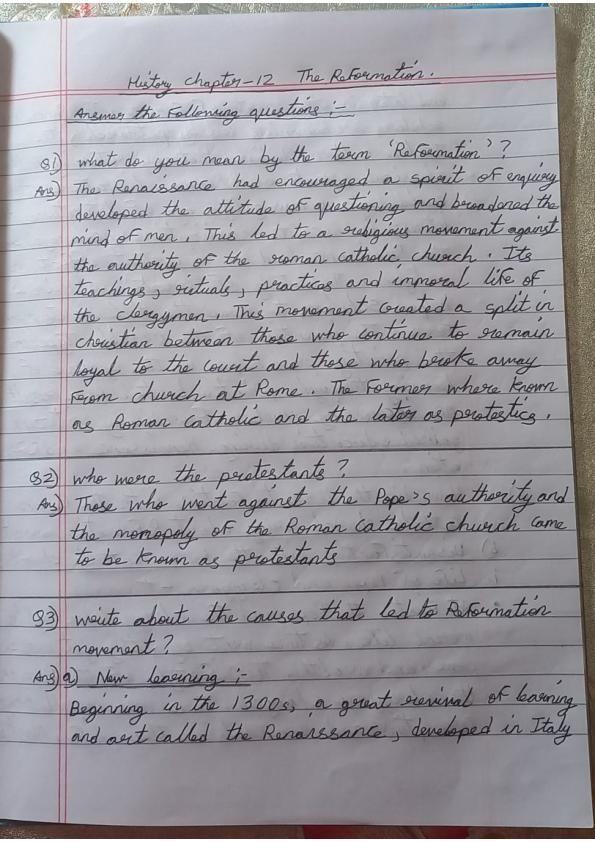 History Chapter-12 The Reformation.
Answer the Following questions :-
Q1) what do you mean by the term 'Reformation'?
Ans) The Renaissance had encouraged a spirit of enquiry
developed the attitude of questioning and broadened the
mind of men. This led to a religious movement against
the authority of the roman catholic church. Its
teachings, rituals, practices and immoral life of
the clergymen. This movement created a split in
christian between those who continue to remain
loyal to the court and those who broke away
From church at Rome. The Former where known
as Roman Catholic and the later as protestics.
Q2) who were the protestants?
Ans) Those who went against the Pope's authority and
the monopoly of the Roman catholic church came
to be known as protestants
Q3) write about the causes that led to Reformation
movement?
Ans) a) New learning :-
Beginning in the 1300s, a great revival of learning
and art called the Renaissance, developed in Italy